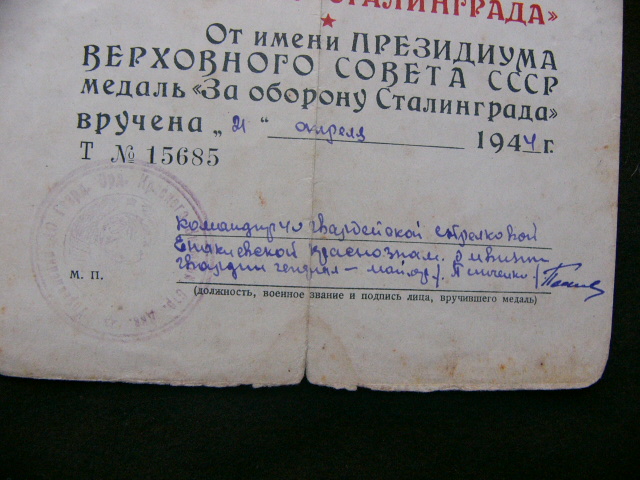 СТАЛИНГРАДА»
От имени ПРЕЗИДИУМА
ВЕРХОВНОГО СОВЕТА СССР
медаль «За оборону Сталинграда»
вручена „21“ апреля 1944 г.
Т № 15685
Командир 40 гвардейской стрелковой
Енакиевской Краснознам. дивизии
гвардии генерал-майор
М. П.
(должность, военное звание и подпись лица, вручившего медаль)